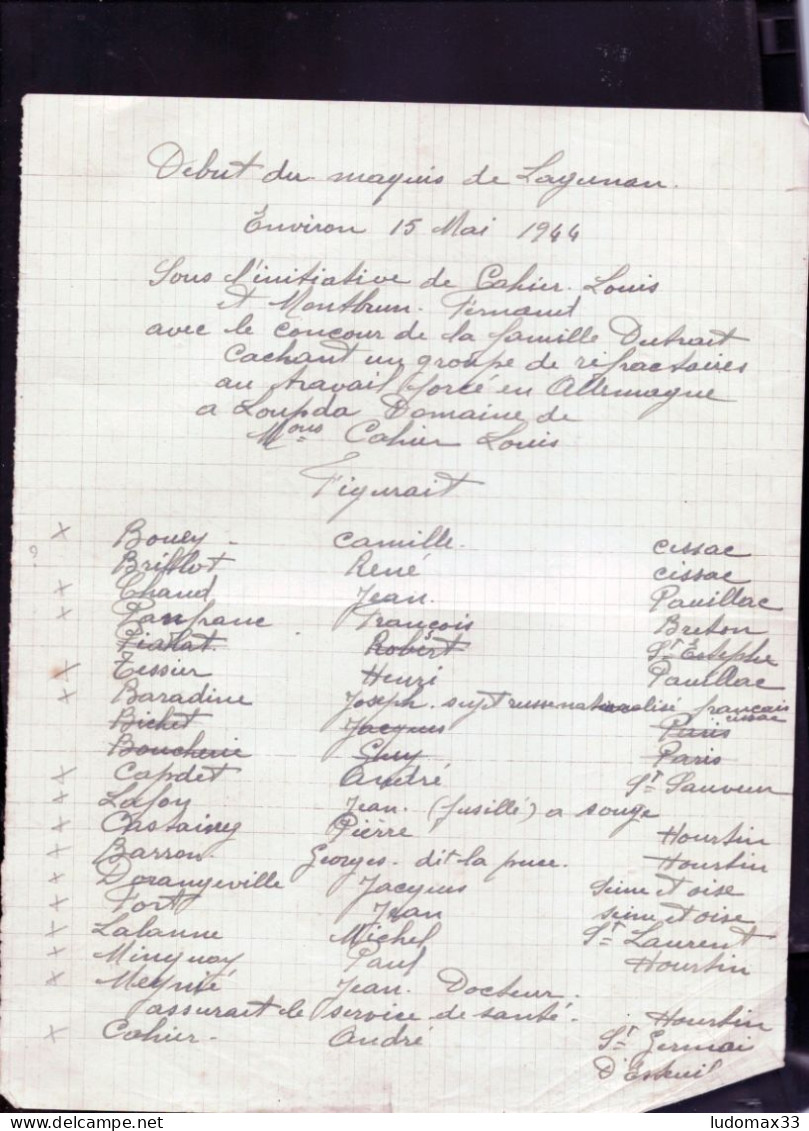 Début du maquis de Lagunan.
Environ 15 Mai 1944
Sous l'initiative de Cahier. Louis
et Montbrun. Fernand
avec le concour de la famille Dutrait
cachant un groupe de réfractaires
au travail forcé en Allemagne
a Loupda Domaine de
Mons Cahier Louis
Figurait
x Bouey - Camille. cissac
? Brifflot René cissac
x Chaud Jean. Pauillac
x Panfranc François Breton
Pialat Robert St Estephe
x Tessier Henri Pauillac
x Baradine Joseph. sujet russe naturalisé français
cissac
Bichet Jacques Paris
Boucherie Guy Paris
x Capdet André St Sauveur
x Lafon Jean. (fusillé) a souge
x Castaing Pierre Hourtin
x Barron. Georges. dit la puce. Hourtin
x Dorangeville Jacques Seine et oise
x Fort Jean seine et oise
x Lalanne Michel St Laurent
x Minguay Paul Hourtin
x Meynié Jean. Docteur.
assurait le service de santé. Hourtin
x Cahier. André St Germai
D'Esteuil
ludomax33